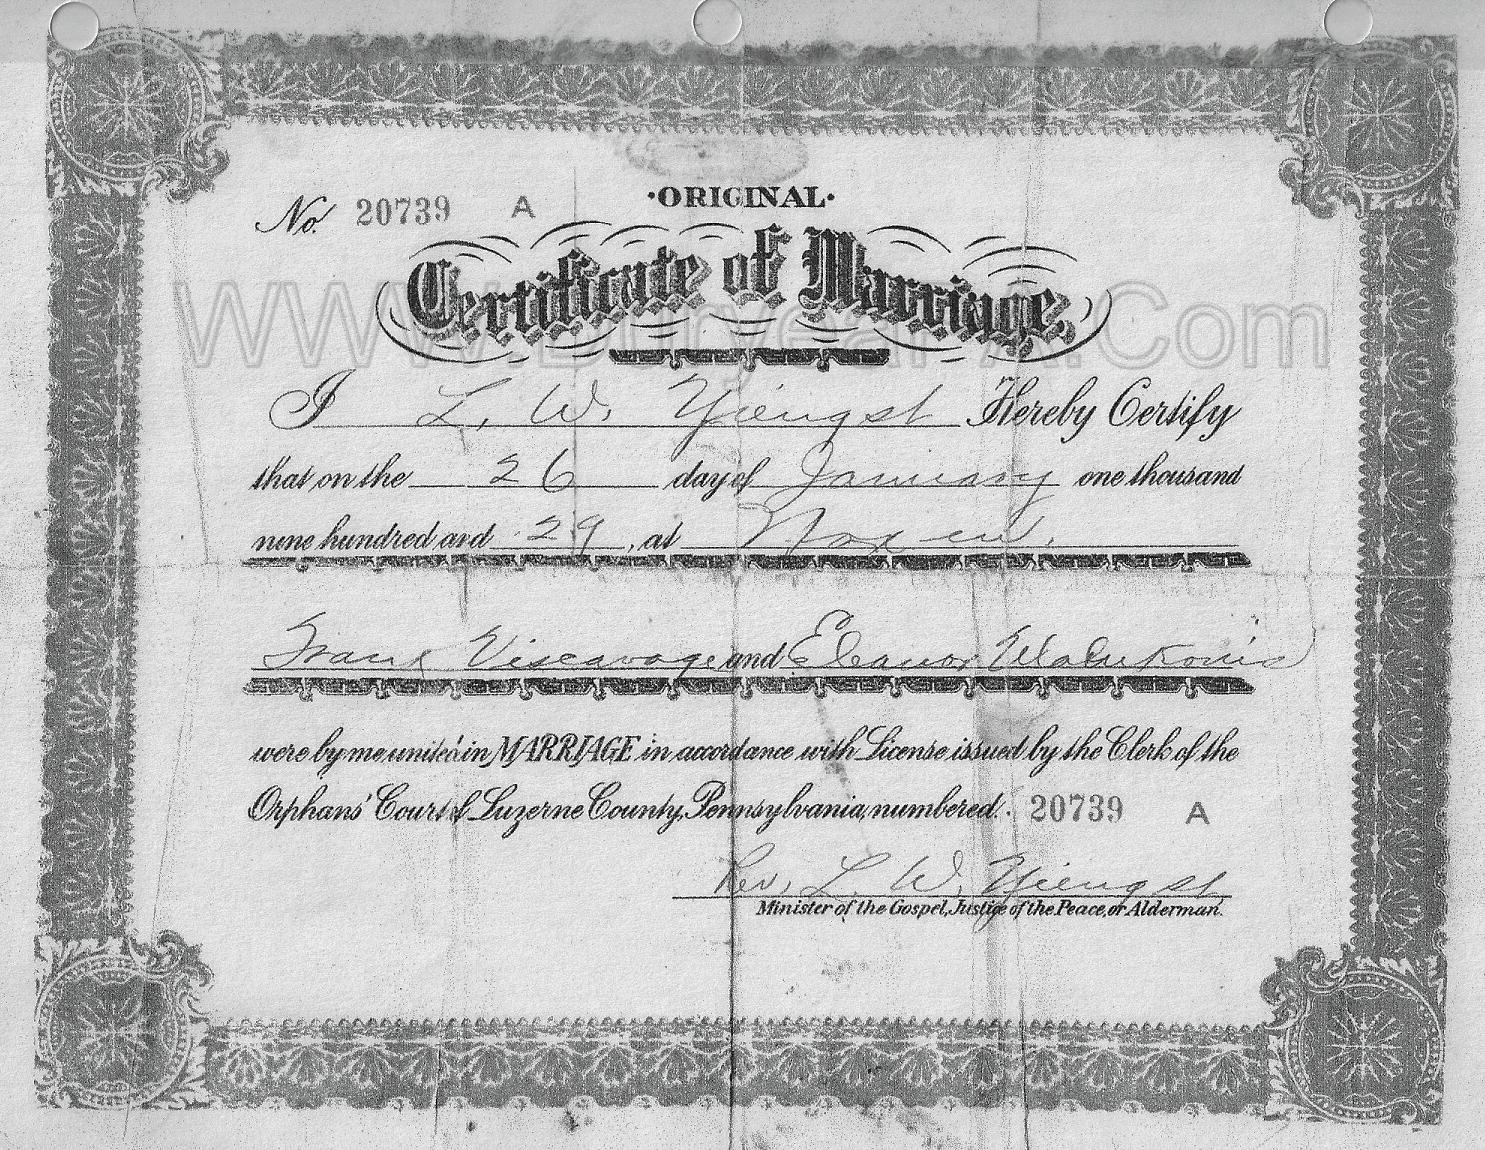 No. 20739 A
·ORIGINAL·
Certificate of Marriage
www.DuryeaPA.Com
I L. W. Yiengst Hereby Certify
that on the 26 day of January one thousand
nine hundred and 29, at Noxen.
Frank Viscavage and Eleanor
were by me united in MARRIAGE in accordance with License issued by the Clerk of the
Orphans' Court of Luzerne County, Pennsylvania, numbered. 20739 A
Rev. L. W. Yiengst
Minister of the Gospel, Justice of the Peace, or Alderman.